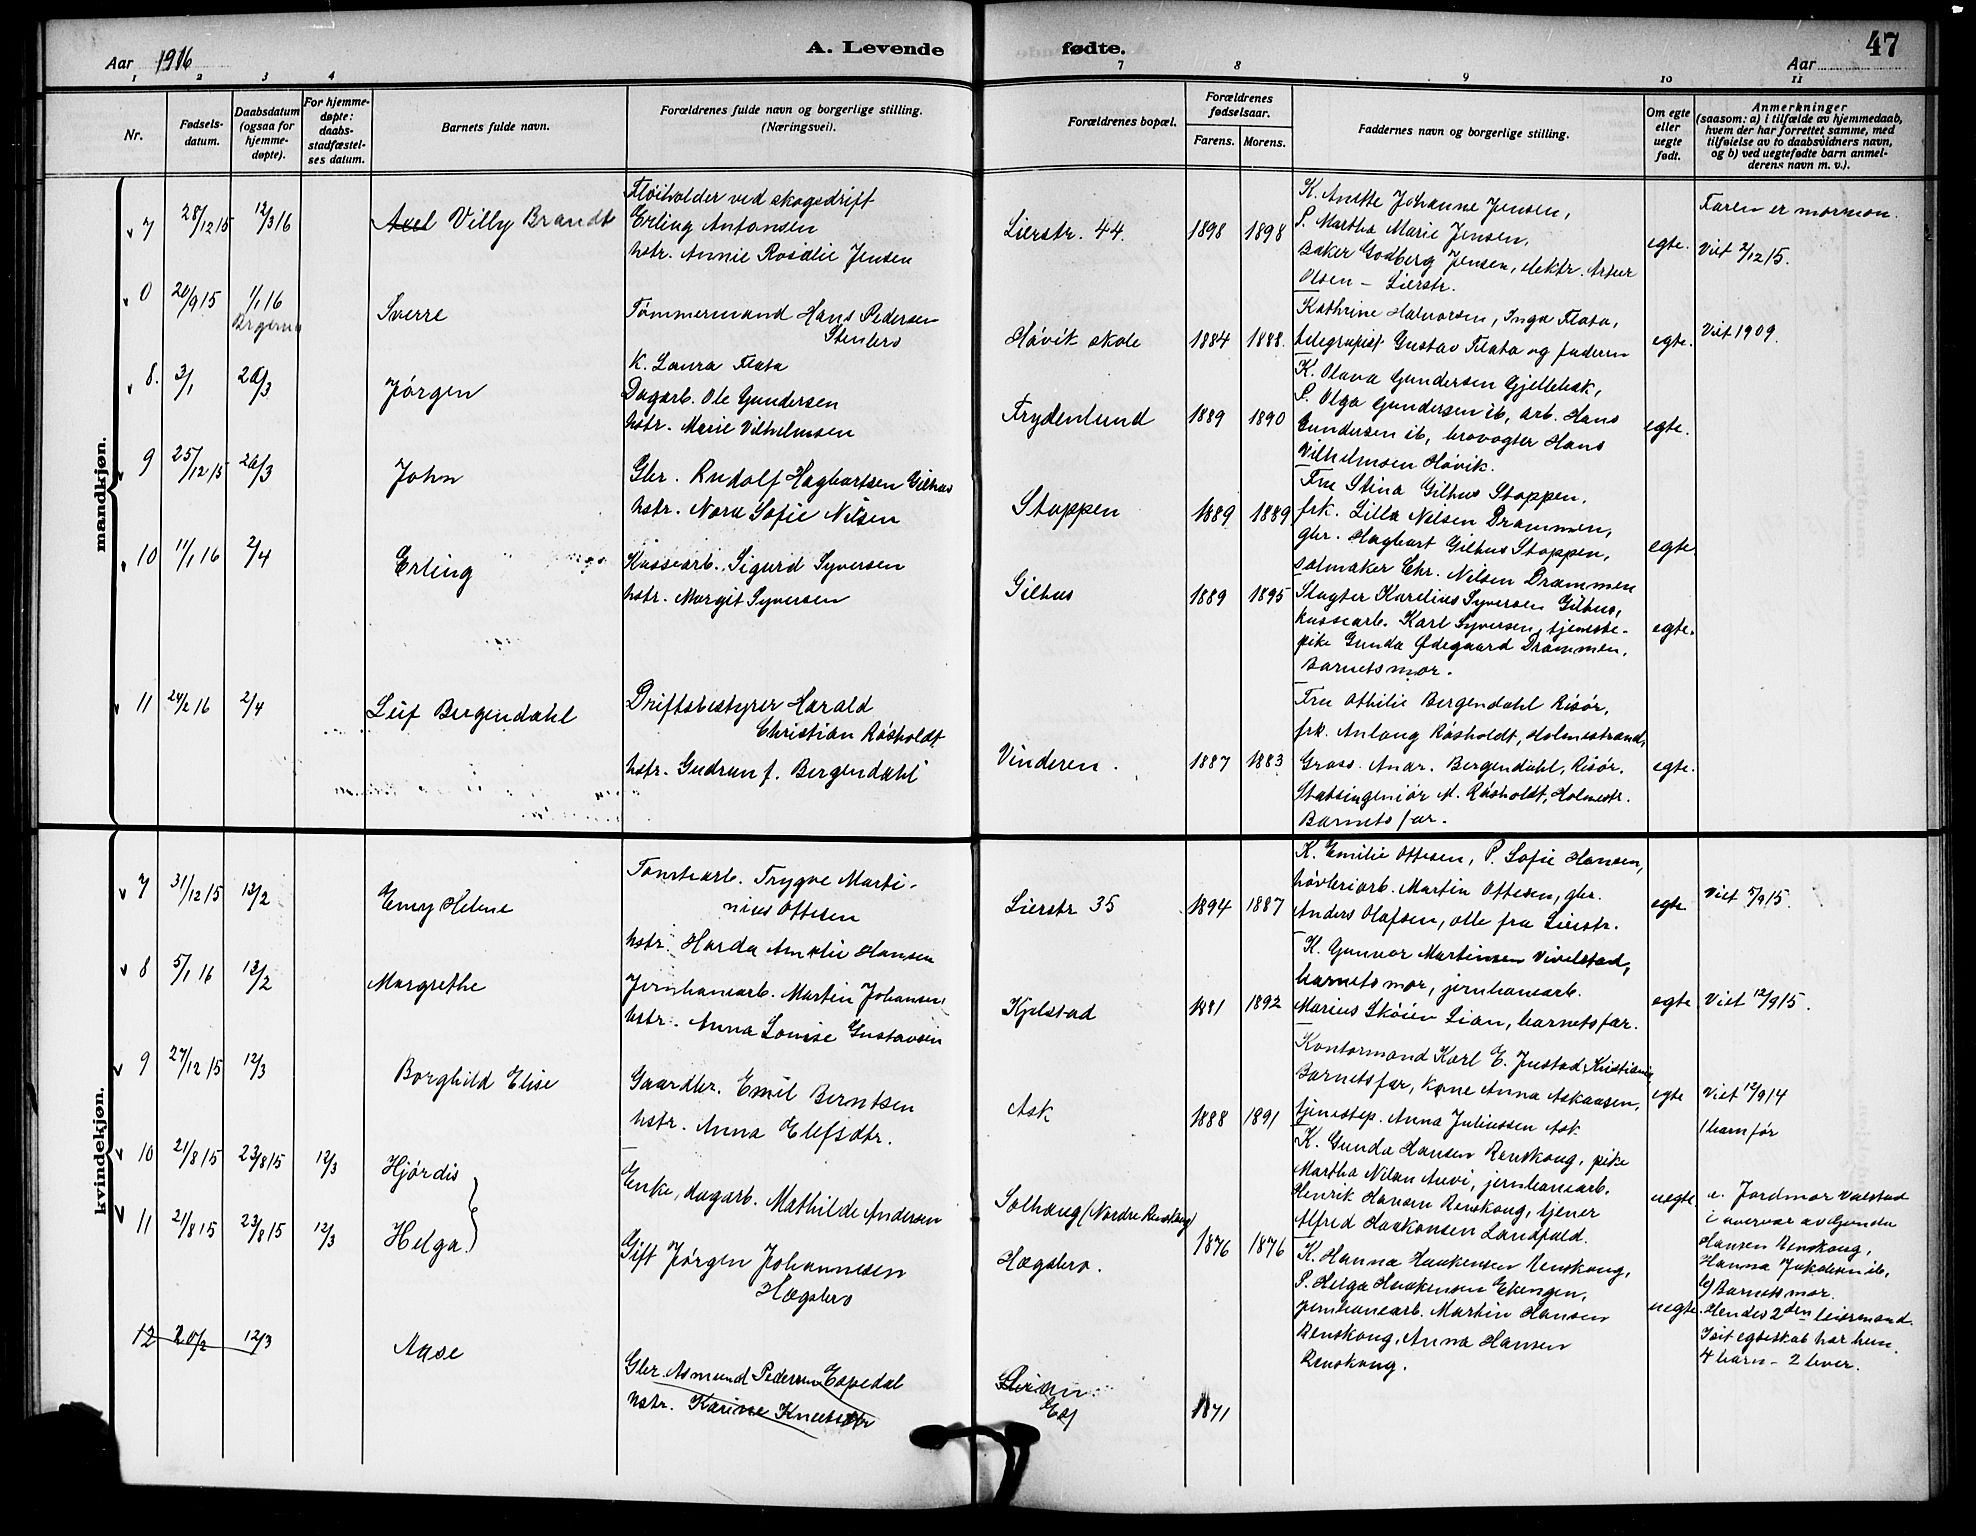 Aar 1916
A. Levende fødte.
47
Aar
1 2 3 4 7 8 9 10 11
Nr.
Fødsels-
datum.
Daabsdatum
(ogsaa for
hjemme-
døpte).
For hjemme-
døpte:
daabs-
stadfæstel-
ses datum.
Barnets fulde navn.
Forældrenes fulde navn og borgerlige stilling.
(Næringsvei).
Forældrenes bopæl.
Forældrenes
fødselsaar.
Farens. Morens.
Faddernes navn og borgerlige stilling.
Om egte
eller
uegte
født.
Anmerkninger
(saasom: a) i tilfælde av hjemmedaab,
hvem der har forrettet samme, med
tilføielse av to daabsvidners navn,
og b) ved uegtefødte barn anmel-
derens navn m. v.).
mandkjøn.
7 28/12 15 12/3 16
Axel Villy Brandt
Fløitholder ved skogsdrift
Erling Antonsen
hstr. Annie Rosalie Jensen
Lierstr. 44.
1898 1898
K. Anette Johanne Jensen,
P. Martha Marie Jensen,
Baker Godberg Jensen, elektr. Artur
Olsen – Lierstr.
egte.
Faren er mormon.
Viet 2/12 15.
0 20/9 15 1/1 16
Sverre
Tømmermand Hans Pedersen
Stenbro
K. Laura Flata
Høvik skole
1884 1888.
Kathrine Halvorsen, Inga Flata,
telegrafist Gustav Flata og faderen
egte.
Viet 1909.
8. 3/1 26/3
Jørgen
Dagarb. Ole Gundersen
hstr. Marie Vilhelmsen
Frydenlund
1889 1890
K. Olava Gundersen Gjellebæk,
P. Olga Gundersen ib, arb. Hans
Gundersen ib, brovogter Hans
Vilhelmsen Høvik.
egte.
9 25/12 15 26/3
John
Gbr. Rudolf Hagbartsen Gilhus
hstr. Nora Sofie Nilsen
Stoppen
1889 1889
Fru Stina Gilhus Stoppen,
frk. Lilla Nilsen Drammen,
gbr. Hagbart Gilhus Stoppen,
salmaker Chr. Nilsen Drammen
egte.
10 11/1 16 2/4
Erling
Kassearb. Sigurd Syversen
hstr. Margit Syversen
Gilhus
1889 1895
Slagter Karelius Syversen Gilhus,
kassearb. Karl Syversen, tjeneste-
pike Gunda Ødegaard Drammen,
Barnets mor.
egte.
11 24/2 16 2/4
Leif Bergendahl
Driftsbestyrer Harald
Christian Røsholdt
hstr. Gudrun f. Bergendahl
Vinderen.
1887 1883
Fru Othilie Bergendahl Risør,
frk. Anlaug Røsholdt, Holmestrand,
Gross. Andr. Bergendahl, Risør.
Statsingeniør M. Røsholdt, Holmestr.
Barnets far.
egte.
kvindekjøn.
7 31/12 15 13/2
Emy Helene
Tomtearb. Trygve Marti-
nius Ottesen
hstr. Harda Amalie Hansen
Lierstr 35
1894 1887
K. Emilie Ottesen, P. Sofie Hansen,
høvleriarb. Martin Ottesen, gbr.
Anders Olafsen, alle fra Lierstr.
egte
Viet 5/9 15.
8 5/1 16 13/2
Margrethe
Jernbanearb. Martin Johansen
hstr. Anna Lovise Gustavsen
Kjelstad
1881 1892
K. Gunvor Martinsen Vivelstad,
barnets mor, jernbanearb.
Marius Skøien Lian, barnets far.
egte
Viet 12/9 15.
9 27/12 15 12/3
Borghild Elise
Gaardbr. Emil Berntsen
hstr. Anna Elefsdtr.
Ask
1888 1891
Kontormand Karl E. Justad, Kristiania,
Barnets far, Kone Anna Askaasen,
tjenestep. Anna Juliussen Ask
egte
Viet 12/9 14
1 barn før
10 21/8 15 23/8 15 12/3
Hjørdis
Enke, dagarb. Mathilde Andersen
Solhaug (Nordre Renskoug)
1876 1876
K. Gunda Hansen Renskoug, pike
Martha Nilsen Auvi, jernbanearb.
Henrik Hansen Renskoug, tjener
Alfred Haakonsen Landfald.
uegte
a. Jordmor Valstad
i overvær av Gunda
Hansen Renskoug,
Hanna Jakobsen ib,
b) Barnets mor.
11 21/8 15 23/8 15 12/3
Helga
Gift Jørgen Johannesen
Hægsbro
Hægsbro.
K. Hanna Haakensen Renskoug,
P. Helga Haakensen Ekengen,
jernbanearb. Martin Hansen
Renskoug, Anna Hansen
Renskoug.
uegte.
Hendes 2den leiermaal.
I sit egteskab har hun
4 barn – 2 lever.
12 20/2 12/3
Aase
Gbr. Asmund Pedersen Espedal
hstr. Karine Knutsdtr
1871